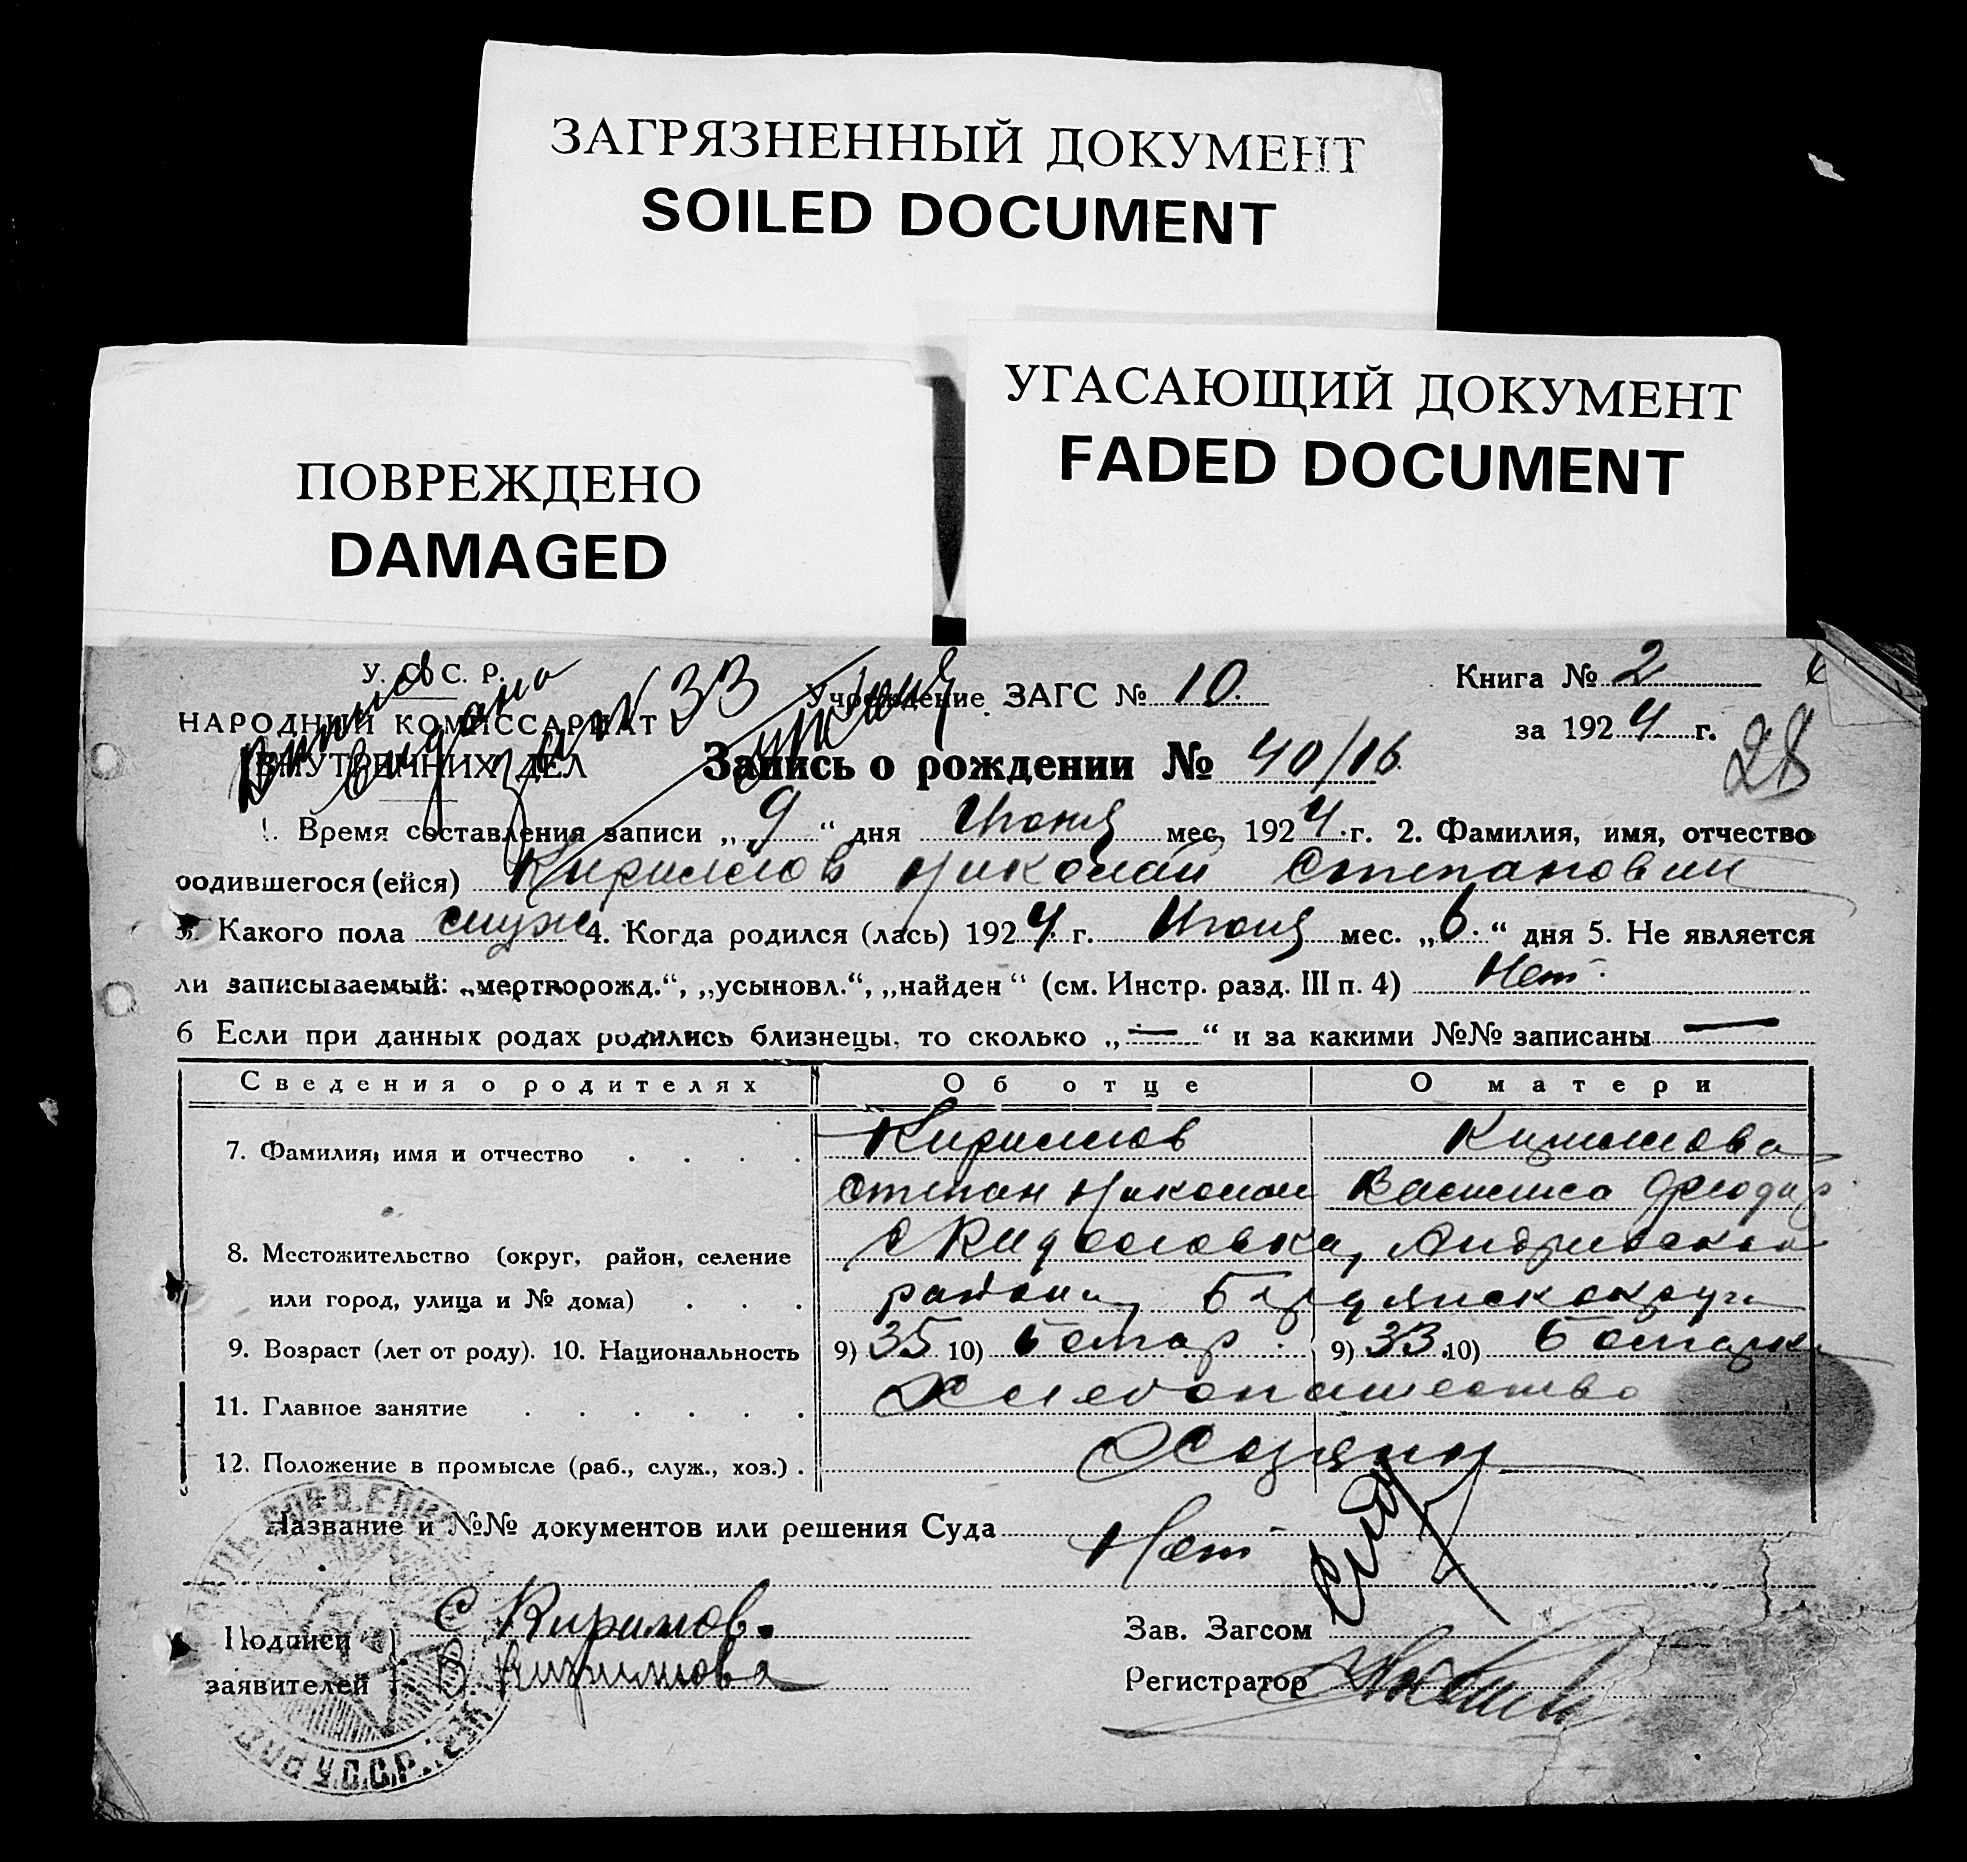 ЗАГРЯЗНЕННЫЙ ДОКУМЕНТ
SOILED DOCUMENT
УГАСАЮЩИЙ ДОКУМЕНТ
FADED DOCUMENT
ПОВРЕЖДЕНО
DAMAGED
У. С. С. Р.
НАРОДНИЙ КОМІССАРИАТ
ВНУТРЕННИХ ДЕЛ
выпись выдана
33
Учреждение ЗАГС № 10.
Книга № 2
за 1924 г.
28
Запись о рождении № 40/16.
1. Время составления записи „9“ дня Июня мес. 1924 г. 2. Фамилия, имя, отчество
родившегося (ейся) Кириллов Николай Степанович
3. Какого пола муж 4. Когда родился (лась) 1924 г. Июня мес. „6.“ дня 5. Не является
ли записываемый: „мертворожд.“, „усыновл.“, „найден“ (см. Инстр. разд. III п. 4) Нет
6 Если при данных родах родились близнецы, то сколько „—“ и за какими №№ записаны —
Сведения о родителях Об отце О матери
7. Фамилия, имя и отчество Кириллов
Степан Николаи Василиса Феодор
8. Местожительство (округ, район, селение
или город, улица и № дома) района, Бердянск округа
9. Возраст (лет от роду). 10. Национальность 9) 35 10) болгар. 9) 33 10) болгарка
11. Главное занятие Хлебопашество
12. Положение в промысле (раб., служ., хоз.) Хозяин
Название и №№ документов или решения Суда Нет
Подписи С. Кирилов.
заявителей В Кириллова
Зав. Загсом
Регистратор
У.С.С.Р.